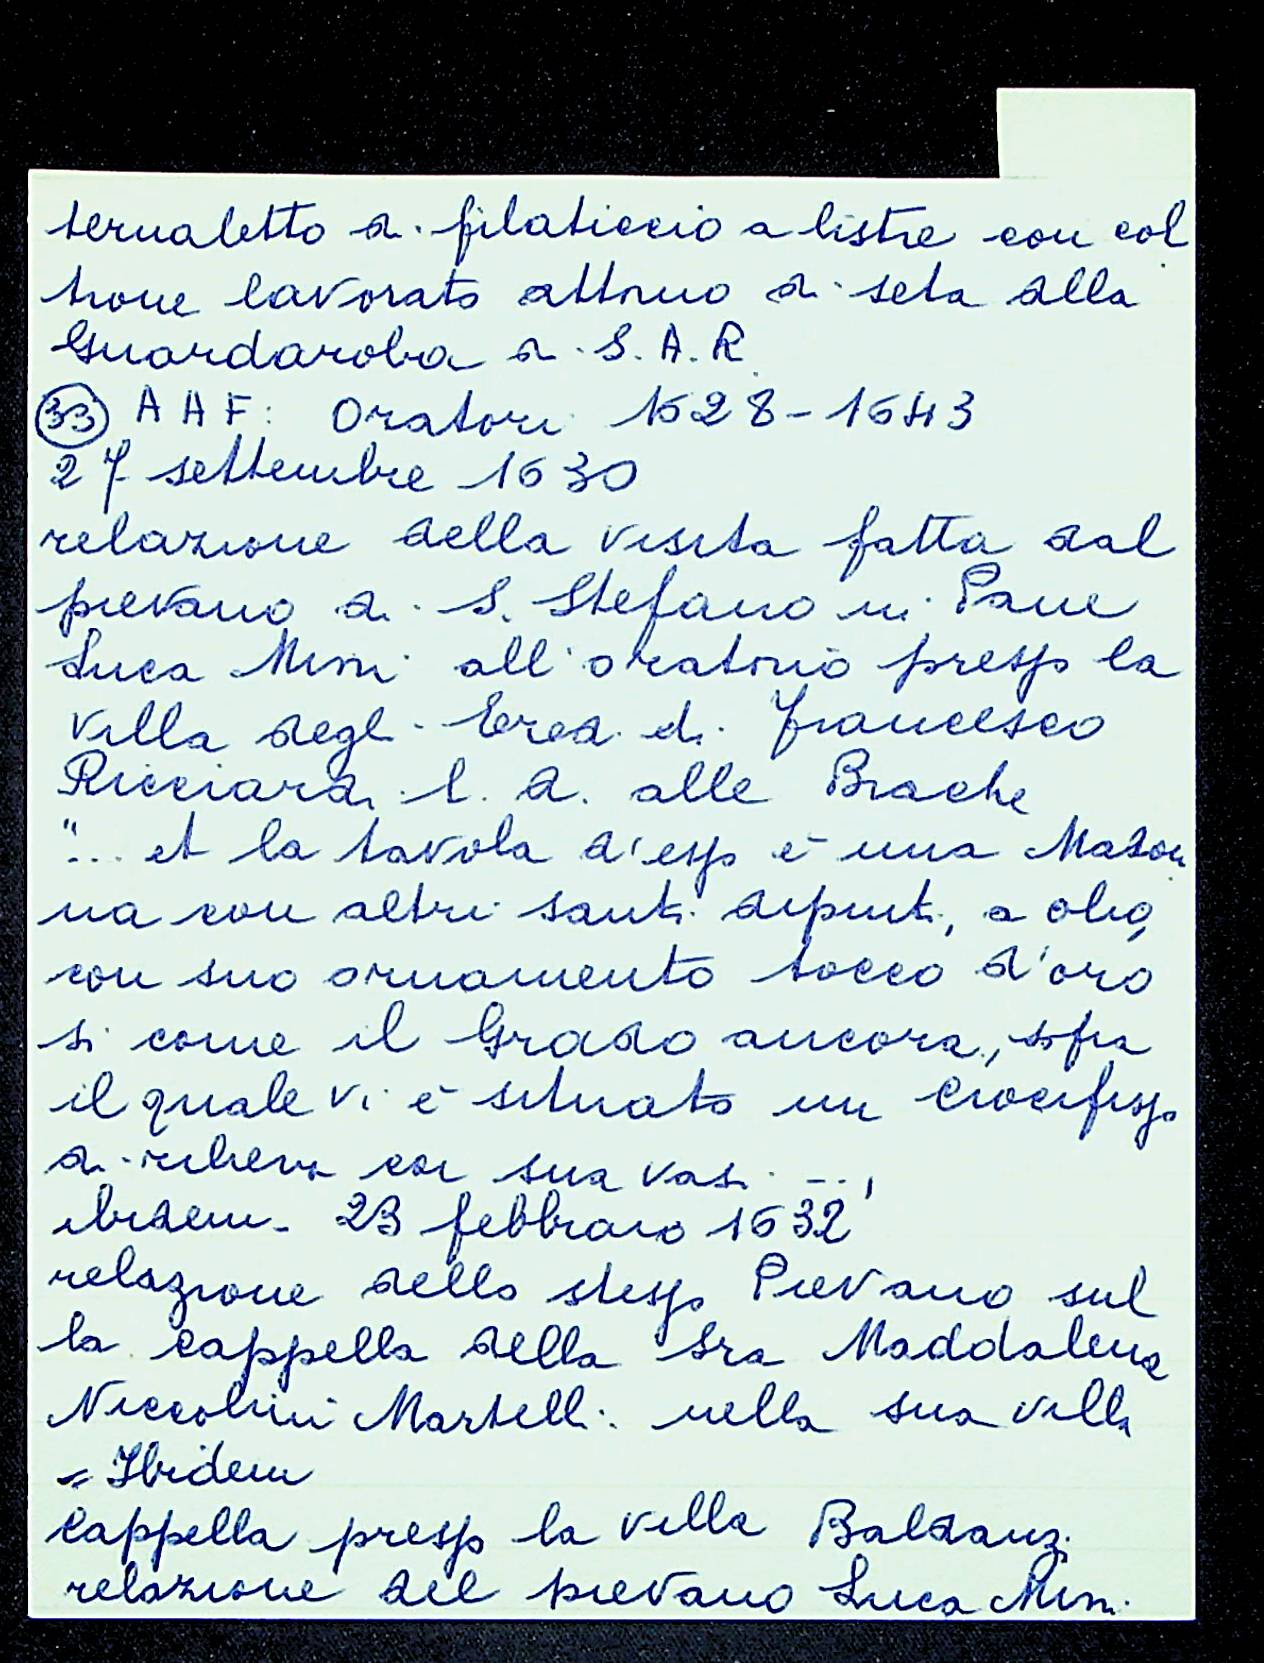 ternaletto di filaticcio a listre con col
trone lavorato attorno di seta alla
Guardaroba di S.A.R.
33 AAF: Oratori 1628-1643
27 settembre 1630
relazione della visita fatta dal
pievano di S. Stefano in Pane
Luca Mini all'oratorio presso la
villa degli Eredi di Francesco
Ricciardi l. d. alle Brache
"... et la tavola d'esso è una Madon
na con altri santi dipinti, a olio,
con suo ornamento tocco d'oro
si come il Grado ancora, sopra
il quale vi è situato un Crocifisso
di rilievo con sua vasi ...,
ibidem - 23 febbraio 1632
relazione dello stesso Pievano sul
la cappella della Sra Maddalena
Niccolini Martelli nella sua villa
= Ibidem
Cappella presso la villa Baldanzi
relazione del pievano Luca Mini